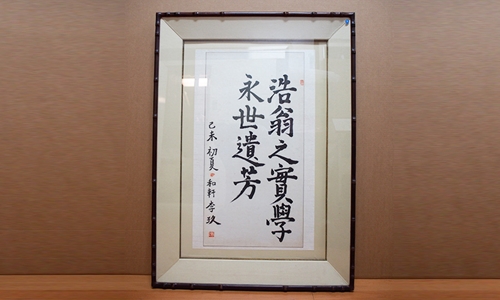 浩翁之實學
永世遺芳
己未初夏和軒李玖